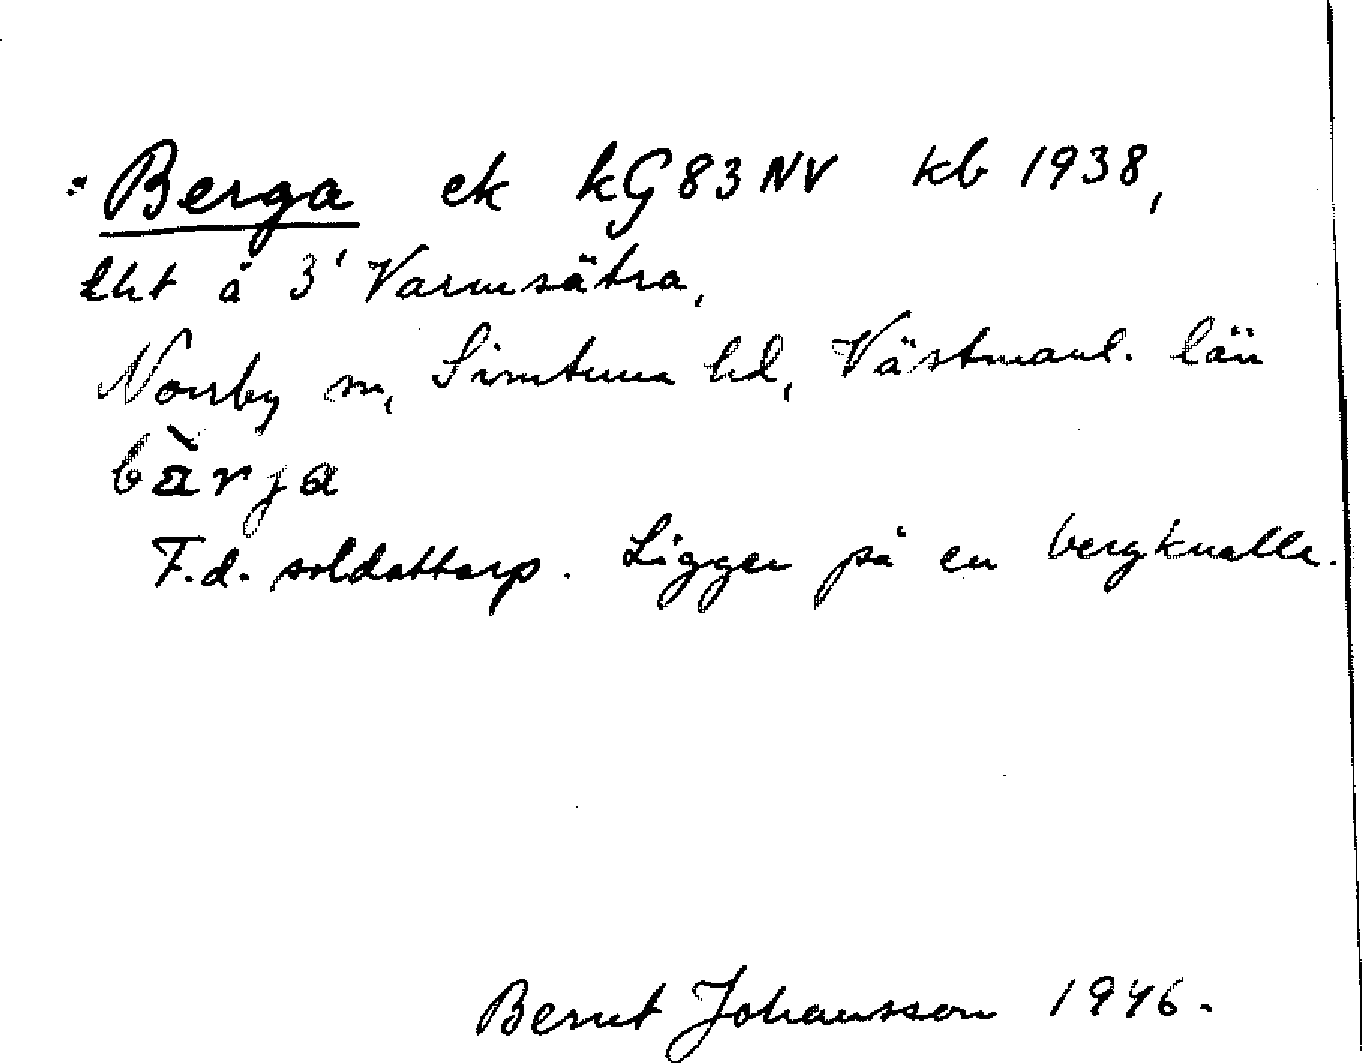 Berga ek kG83NV kb 1938,
lht å 3' Varmsätra,
Norrby sn, Simtuna hd, Västmanl. län
bàrja
F.d. soldattorp. Ligger på en bergknalle.
Bernt Johansson 1946.